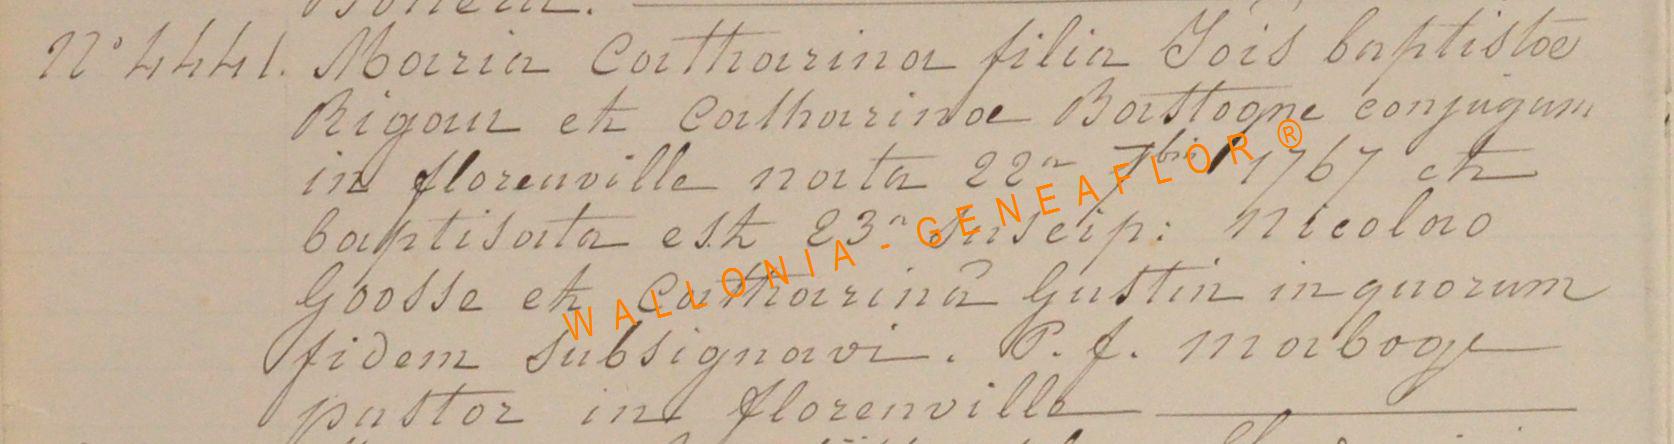 N° 4441. Maria Catharina filia Jois baptistæ
Rigaux et Catharinæ Bastogne conjugum
in florenville nata 22a 7bris 1767 et
baptisata est 23a suscip: nicolao
Goosse et Catharinâ Gustin in quorum
fidem subsignavi. P. f. maboge
pastor in florenville
WALLONIA - GENEAFLOR ®